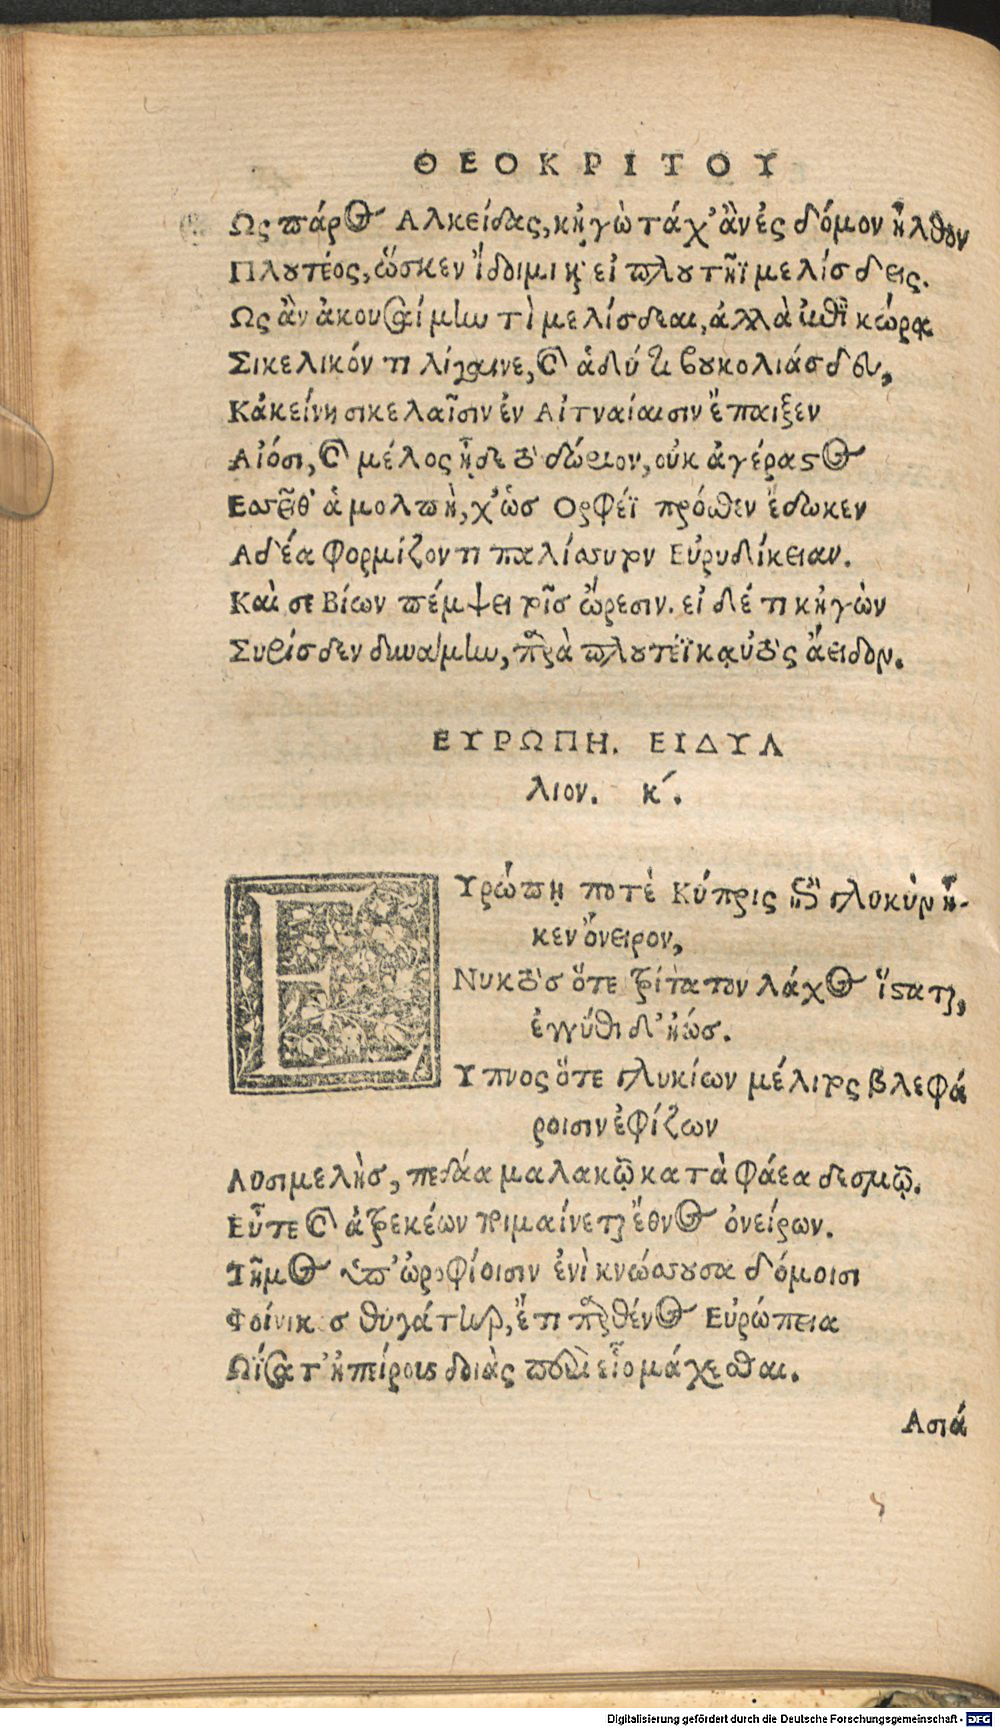 ΘΕΟΚΡΙΤΟΥ
Ως πάρος Αλκείδας, κἠγὼ τάχ' ἂν ἐς δόμον ἦλθον
Πλουτέος, ὥσκεν ἴδοιμι κỳ εἰ πλουτῆϊ μελίσδεις.
Ως ἂν ἀκουσαίμην τὶ μελίσδεαι, ἀλλὰ κώρᾳ
Σικελικόν τι λίγαινε, καὶ ἁδύ τι βουκολιάσδευ,
Κἀκείνη σικελαῖσιν ἐν Αἰτναίαισιν ἔπαιξεν
Αἰόσι, καὶ μέλος ᾖδε τὸ δώριον, οὐκ ἀγέραστος
Εσσεῖθ' ἁ μολπὴ, χ' ὡς Ορφέϊ πρόσθεν ἔδωκεν
Αδέα φορμίζοντι παλίσσυτον Εὐρυδίκειαν.
Καὶ σε Βίων πέμψει τοῖς ὤρεσιν. εἰ δέ τι κἠγὼν
Συρίσδεν δυναίμην, παρὰ πλουτέϊ καὐτὸς ἄειδον.
ΕΥΡΩΠΗ. ΕΙΔΥΛ
λιον. κ´.
ΕΥρώπῃ ποτὲ Κύπρις ἐπὶ γλυκὺν ἧ-
κεν ὄνειρον,
Νυκτὸς ὅτε τρίτατον λάχος ἵσταται,
ἐγγύθι δ' ἠώς.
Υπνος ὅτε γλυκίων μέλιτος βλεφά
ροισιν ἐφίζων
Λυσιμελὴς, πεδάα μαλακῷ κατὰ φάεα δεσμῷ.
Εὖτε καὶ ἀτρεκέων ποιμαίνεται ἔθνος ὀνείρων.
Τῆμος ὑπ' ὠροφίοισιν ἐνὶ κνώσσουσα δόμοισι
Φοίνικος θυγάτηρ, ἔτι παρθένος Εὐρώπεια
Ωΐσατ' ἠπείρους δοιὰς περὶ εἷο μάχεσθαι.
Ασιά
Digitalisierung gefördert durch die Deutsche Forschungsgemeinschaft - DFG